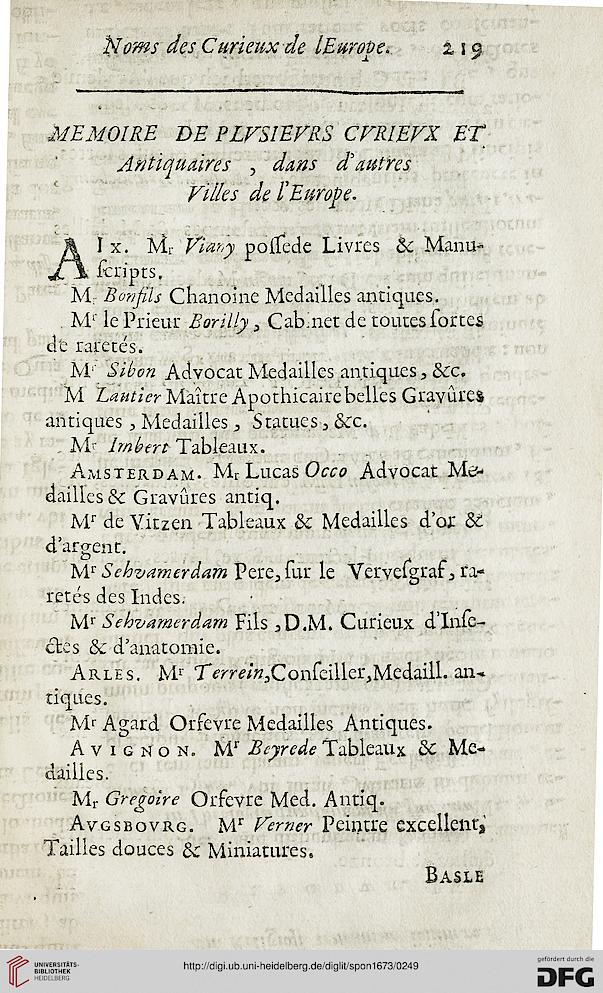 Noms des Curieux de lEurope. 219
MEMOIRE DE PLVSIEVRS CVRIEVX ET
Antiquaires , dans d'autres
Villes de l'Europe.
AIx. Mr Viany poſſede Livres & Manu-
ſcripts.
Mr Bonfils Chanoine Medailles antiques.
Mr le Prieur Borilly, Cabinet de toutes ſortes
de raretés.
Mr Sibon Advocat Medailles antiques, &c.
M Lautier Maître Apothicaire belles Gravûres
antiques, Medailles, Statues, &c.
Mr Imbert Tableaux.
AMSTERDAM. Mr Lucas Occo Advocat Me-
dailles & Gravûres antiq.
Mr de Vitzen Tableaux & Medailles d'or &
d'argent.
Mr Schvamerdam Pere, ſur le Verveſgraf, ra-
retés des Indes.
Mr Schvamerdam Fils, D.M. Curieux d'Inſe-
ctes & d'anatomie.
ARLES. Mr Terrein, Conſeiller, Medaill. an-
tiques.
Mr Agard Orfevre Medailles Antiques.
AVIGNON. Mr Beyrede Tableaux & Me-
dailles.
Mr Gregoire Orfevre Med. Antiq.
AVGSBOVRG. Mr Verner Peintre excellent,
Tailles douces & Miniatures.
BASLE
UNIVERSITÄTS-
BIBLIOTHEK
HEIDELBERG
http://digi.ub.uni-heidelberg.de/diglit/spon1673/0249
gefördert durch die
DFG